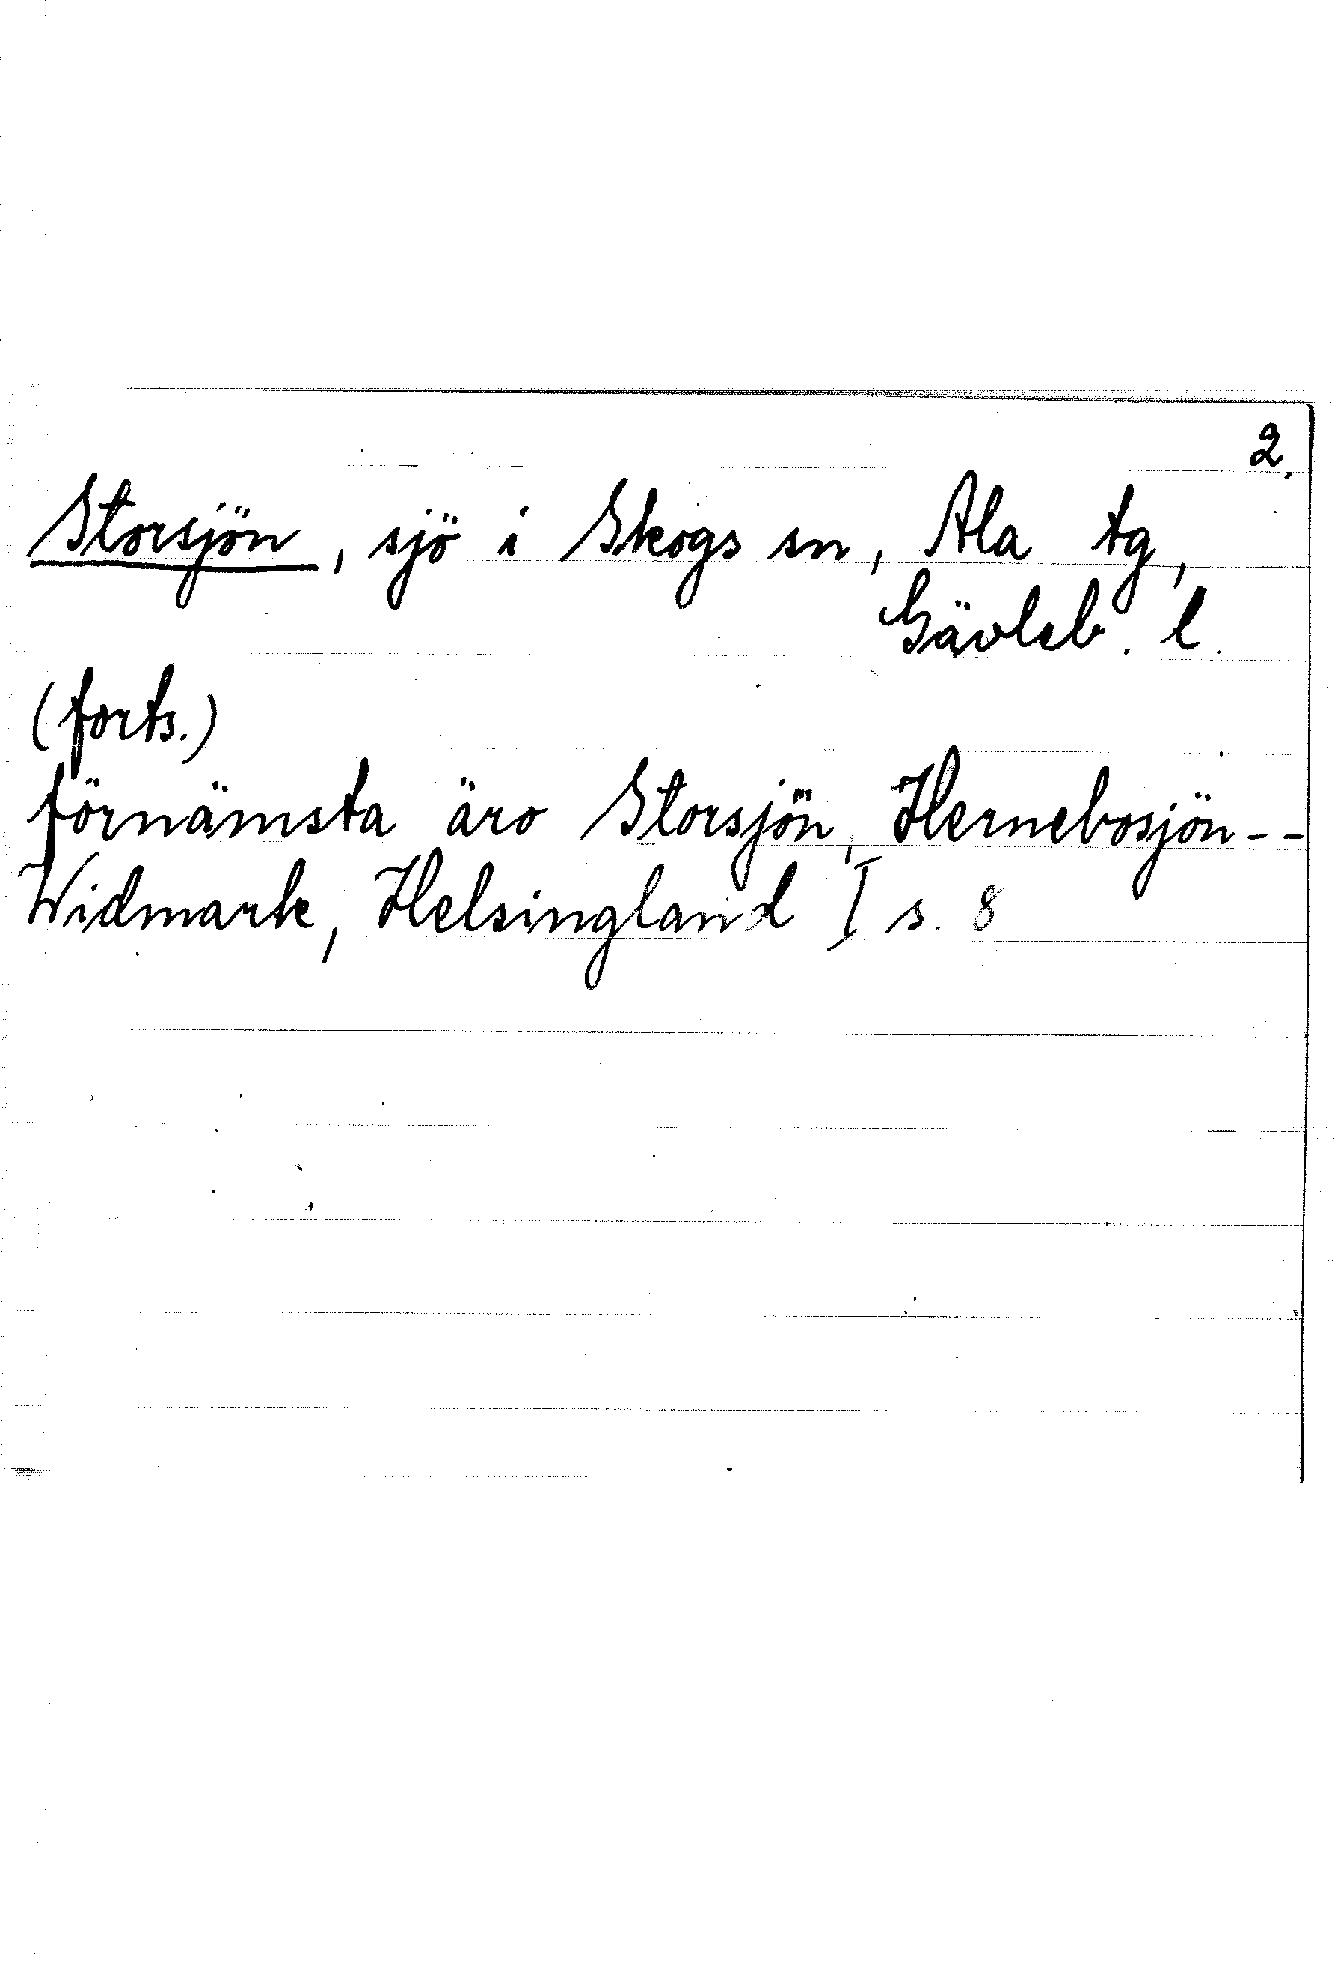 2.
Storsjön, sjö i Skogs sn, Ala tg,
Gävleb. l.
(forts.)
förnämsta äro Storsjön, Hernebosjön--
Widmark, Helsingland I s. 8